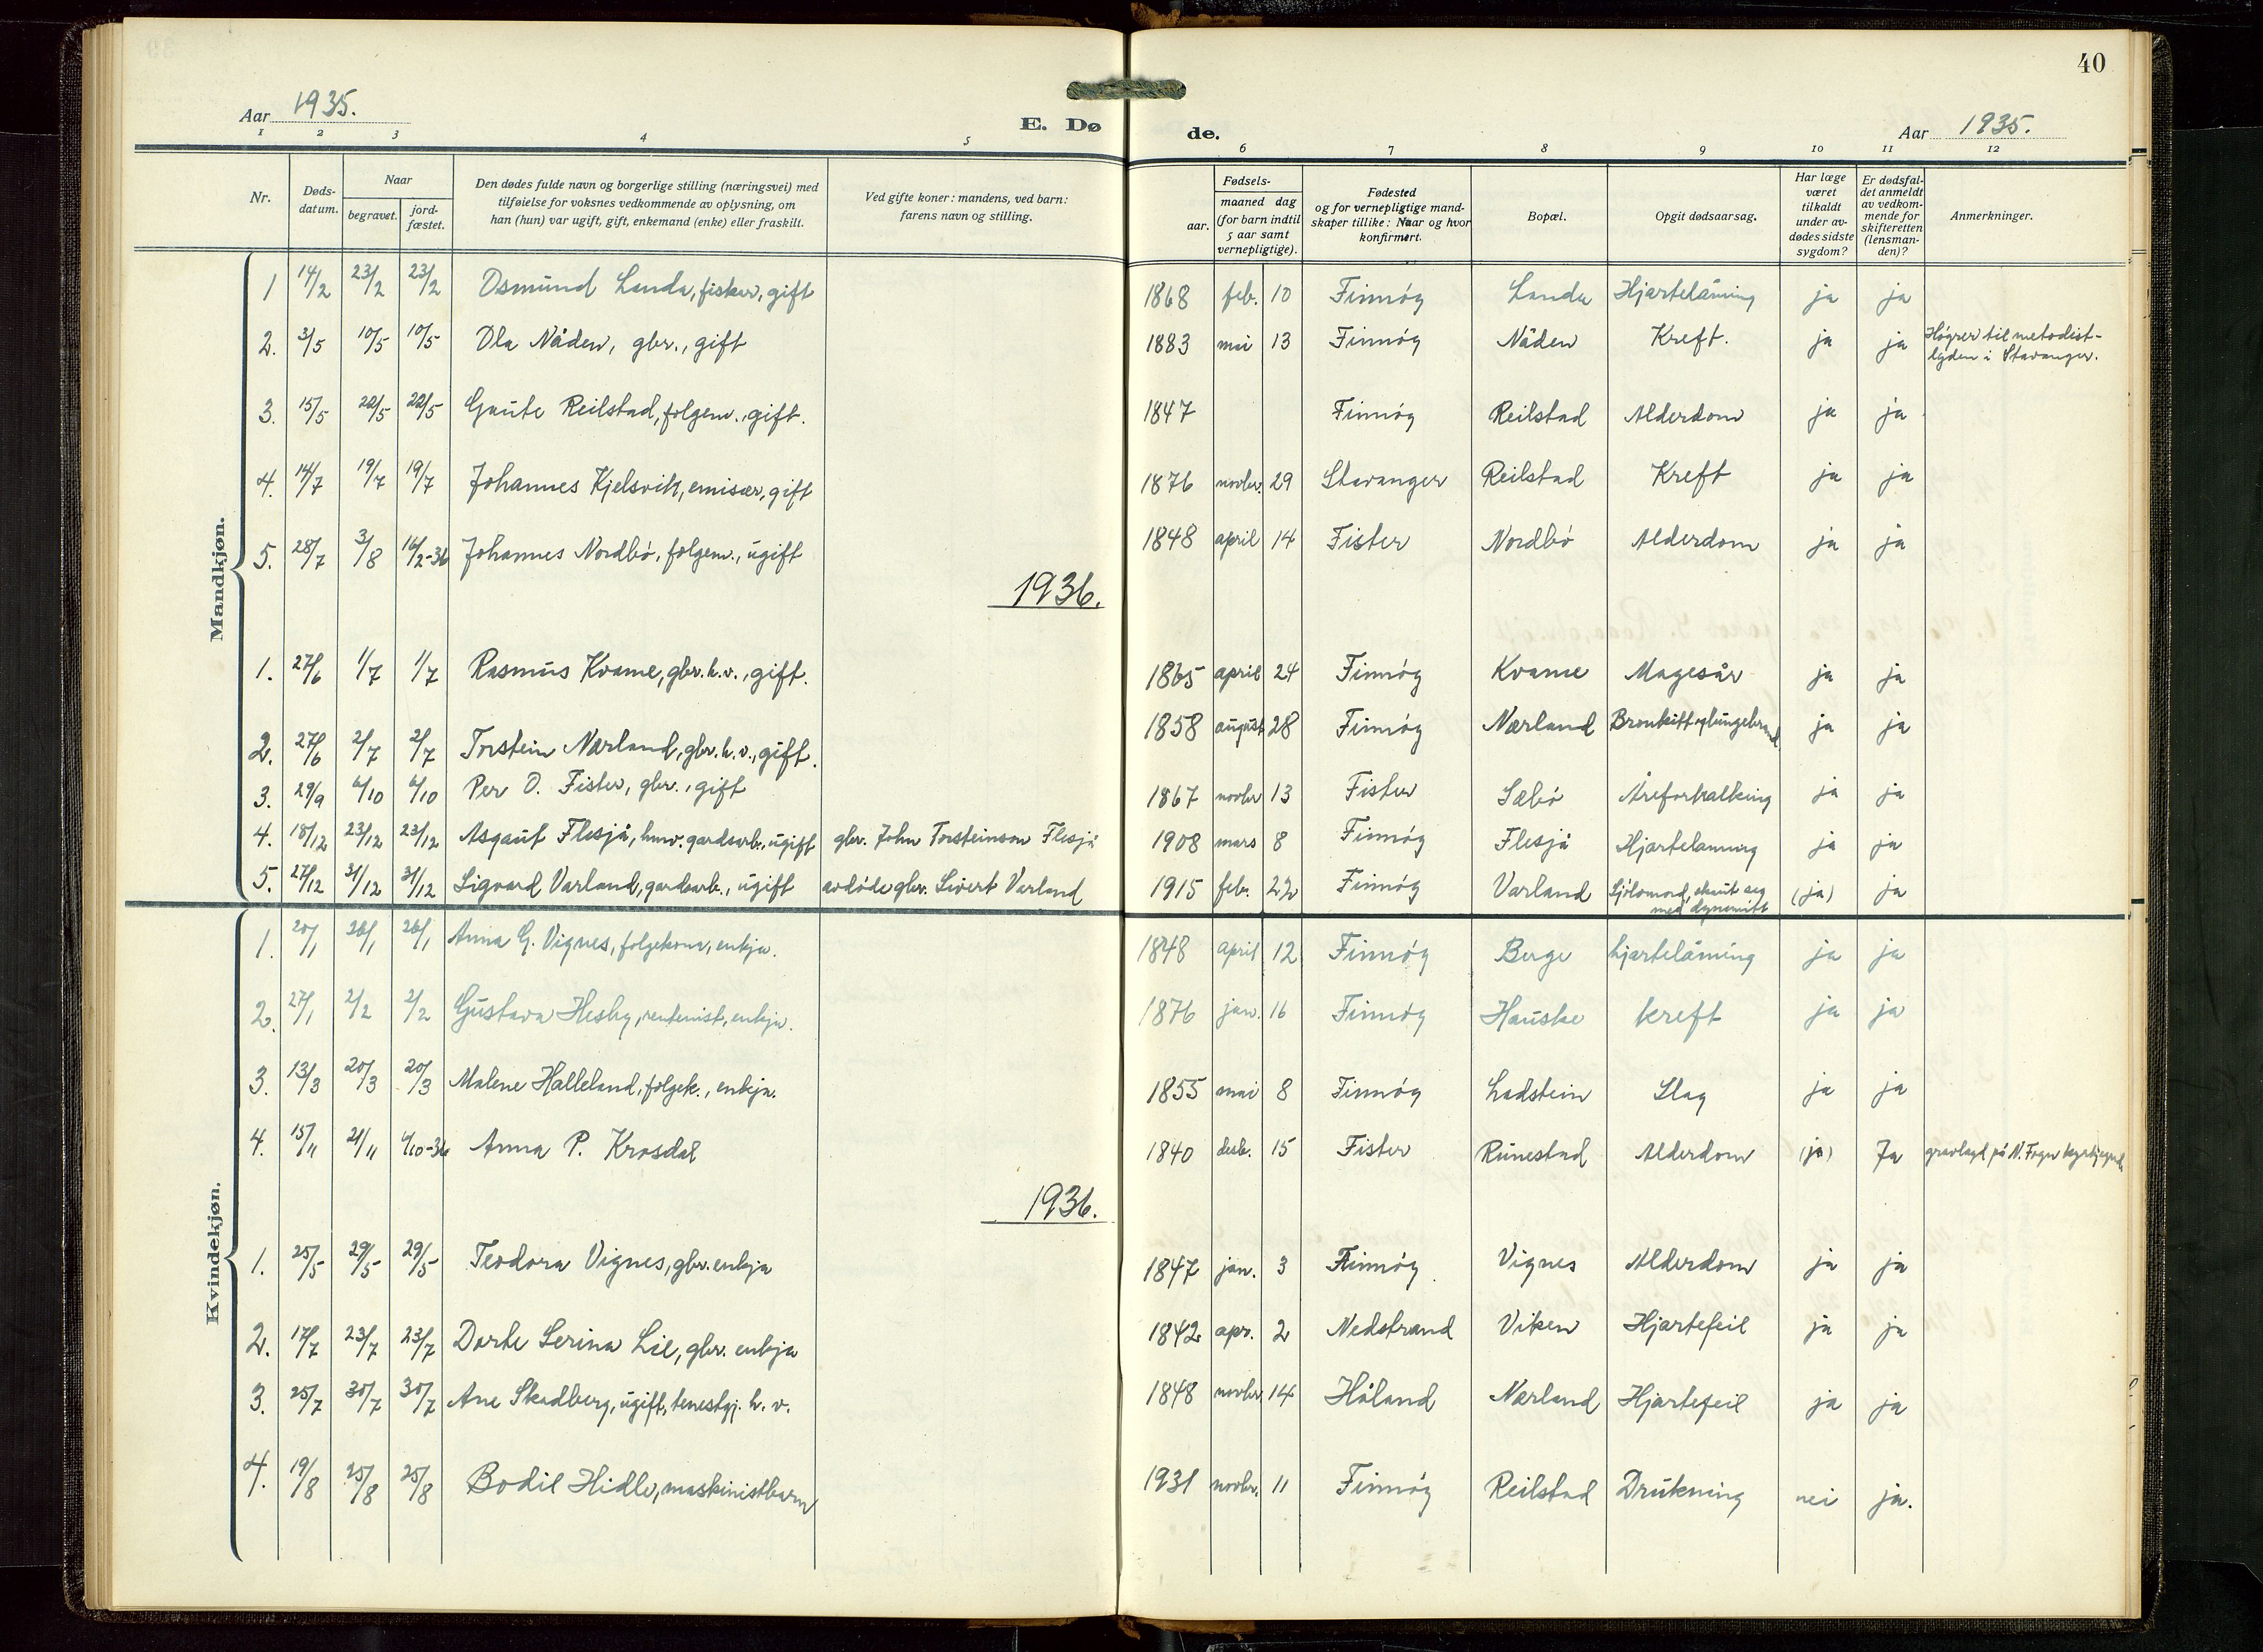 40
Aar 1935.
E. Dø
de.
Aar 1935.
1 2 3 4 5
6 7 8 9 10 11 12
Nr.
Døds-
datum.
Naar
begravet.
jord-
fæstet.
Den dødes fulde navn og borgerlige stilling (næringsvei) med
tilføielse for voksnes vedkommende av oplysning, om
han (hun) var ugift, gift, enkemand (enke) eller fraskilt.
Ved gifte koner: mandens, ved barn:
farens navn og stilling.
Fødsels-
aar.
maaned dag
(for barn indtil
5 aar samt
vernepligtige).
Fødested
og for vernepligtige mand-
skaper tillike: Naar og hvor
konfirmert.
Bopæl.
Opgit dødsaarsag.
Har læge
været
tilkaldt
under av-
dødes sidste
sygdom?
Er dødsfal-
det anmeldt
av vedkom-
mende for
skifteretten
(lensman-
den)?
Anmerkninger.
Mandkjøn.
1 14/2 23/2 23/2 Osmund Landa, fisker, gift 1868 feb. 10 Finnöy Landa Hjartelåming ja ja
2. 3/5 10/5 10/5 Ola Nåden, gbr., gift 1883 mai 13 Finnöy Nåden Kreft. ja ja Högrer til metodist-
lyden i Stavanger.
3. 15/5 22/5 22/5 Gaute Reilstad, folgem., gift. 1847 Finnöy Reilstad Alderdom ja ja
4. 14/7 19/7 19/7 Johannes Kjelsvik, emisær, gift 1876 novbr. 29 Stavanger Reilstad Kreft ja ja
5. 28/7 3/8 16/2-36 Johannes Nordbö, folgem., ugift 1848 april 14 Fister Nordbö Alderdom ja ja
1936.
1. 27/6 1/7 1/7 Rasmus Kvame, gbr. h.v., gift. 1865 april 24 Finnöy Kvame Magesår ja ja
2. 27/6 2/7 2/7 Torstein Nærland, gbr. h.v., gift. 1858 august 28 Finnöy Nærland Bronkitt og lungebrand ja ja
3. 29/9 6/10 6/10 Per O. Fister, gbr., gift 1867 novbr 13 Fister Sæbö Åreforkalking ja ja
4. 18/12 23/12 23/12 Asgaut Flesjå, hmv. gardsarb., ugift gbr. John Torsteinson Flesjå 1908 mars 8 Finnöy Flesjå Hjartelamning ja ja
5. 27/12 31/12 31/12 Sigvard Varland, gardsarb., ugift avdöde gbr. Sivert Varland 1915 feb. 22 Finnöy Varland Sjölvmord, skaut seg
med dynamitt (ja) ja
Kvindekjøn.
1. 20/1 26/1 26/1 Anna G. Vignes, folgekona, enkja. 1848 april 12 Finnöy Berge hjartelåming ja ja
2. 27/1 2/2 2/2 Gustava Hesby, rentenist, enkja. 1876 jan. 16 Finnöy Hauske kreft ja ja
3. 13/3 20/3 20/3 Malene Halleland, folgek., enkja. 1855 mai 8 Finnöy Ladstein Slag ja ja
4. 15/11 21/11 4/10-36 Anna P. Krosdal 1840 desb. 15 Fister Runestad Alderdom (ja) Ja gravlagd på N. Fogn
1936.
1. 25/5 29/5 29/5 Teodora Vignes, gbr. enkja 1847 jan. 3 Finnöy Vignes Alderdom ja ja
2. 17/7 23/7 23/7 Dorte Serina Lie, gbr. enkja 1842 apr. 2 Nedstrand Viken Hjartefeil ja ja
3. 25/7 30/7 30/7 Ane Skadberg, ugift, tenestgj. h. v. 1848 novbr 14 Håland Nærland Hjartefeil ja ja
4. 19/8 25/8 25/8 Bodil Hidle, maskinistbarn 1931 novbr. 11 Finnöy Reilstad Drukning nei ja.